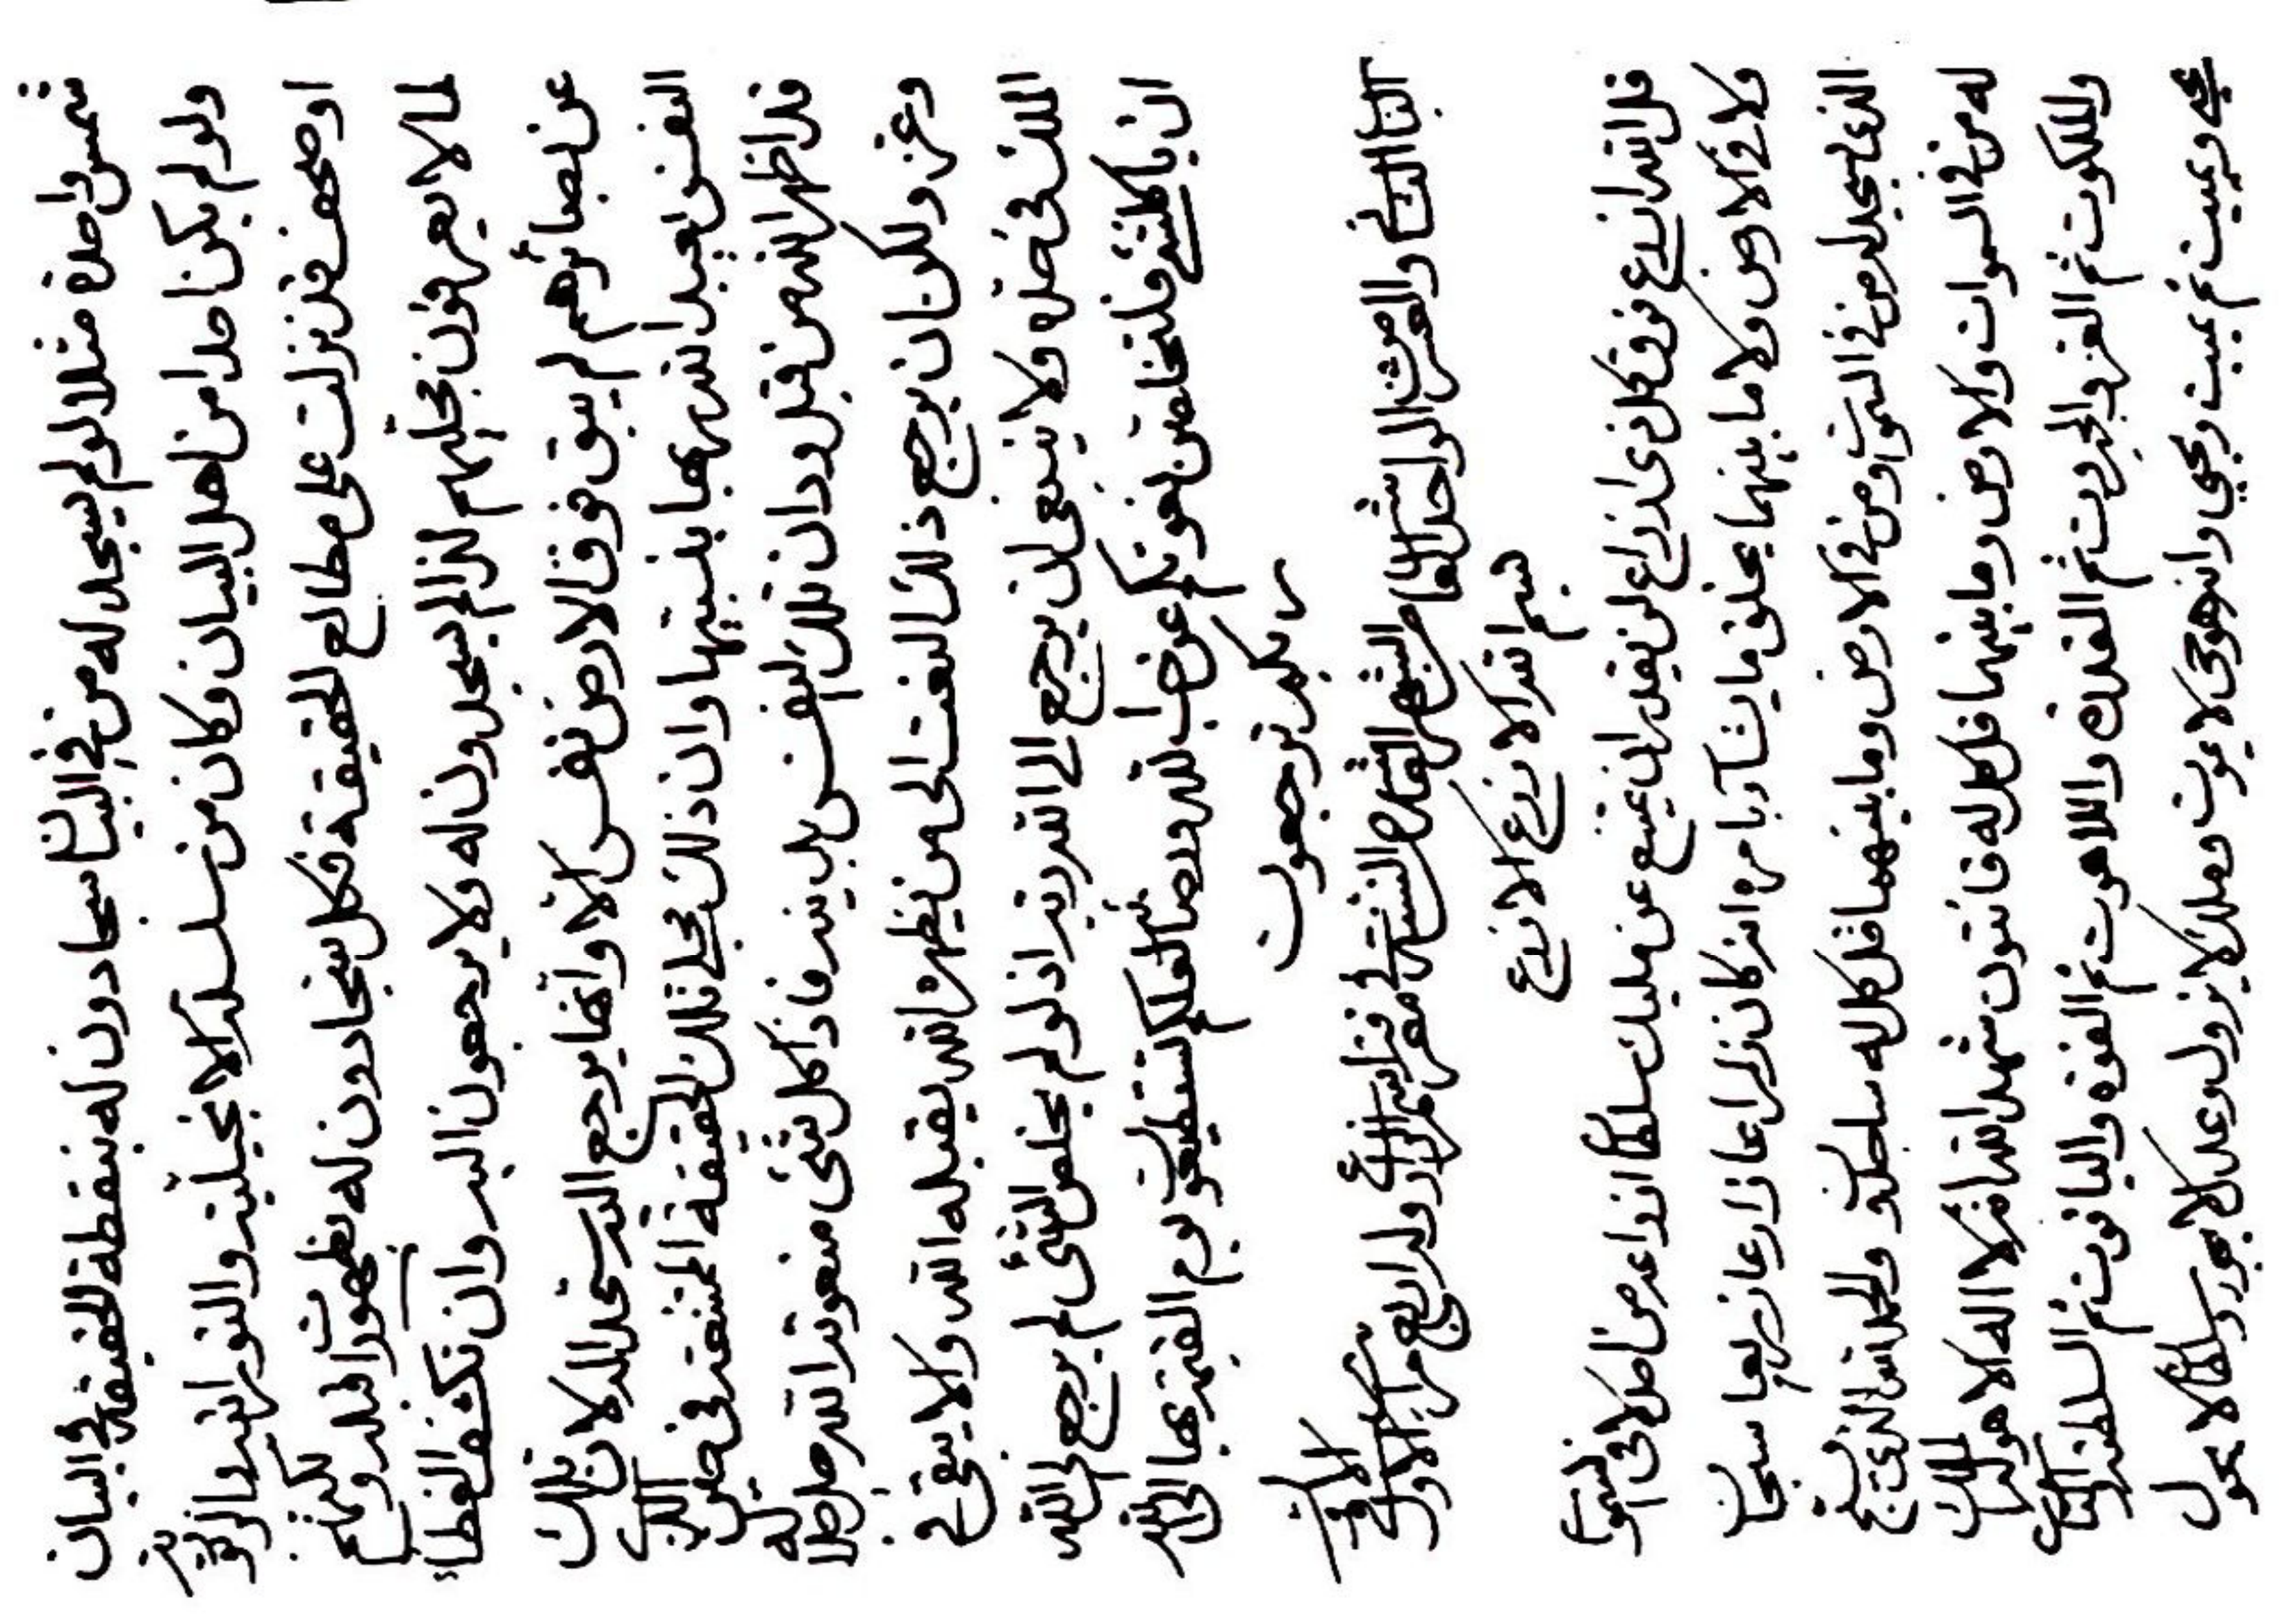 شمس واحدة مثلا لو لم يسجد له من في البيان سجادون له بنقطة الحقيقة في البيان
ولو لم يكن احدا من اهل البيان وكان من سلسلة الانجيلية
او صحف قد نزلت على مطالع الحقيقة فكل سجادون له بظهورات قبله ولكنهم
لما لا يعرفون مجليهم لذا لم يسجدون له ولا يرجعون اليه وان تكشف الغطاء
عن بصائرهم لم يبق فوق الارض نفس الا وانها يرجع اليه لان تلك
النفس يعبد الله ربها بنبيها وان ذلك مجلي تلك الحقيقة في حين الذي
قد اظهر الله من قبل ودان تلك النفس بل بدينه فاذا كل شئ منعوته الله جل جلاله
وعز ولكن ان يرجع ذلك النعت الى من يظهره الله يقبله الله والا يبقى في
الملك في خلقه ولا ينبغي ان يرجع الى الله ربه اذ لو لم يخلص الشئ لم يرجع الى الله
ان يا كلشئ فلتخلصن نعوتكم لعلكم تستطيعون يوم القيمة بها الى الله
ربكم ترجعون
الباب الثاني والعشر من الواحد في معرفة اسم وله اربع مراتب الاول في الاول
بسم الله الازرع الازرع
قل الله ازرع فوق كل ذي ازراع لن يقدر ان يمتنع عن مليك سلطان ازراعه من احد لا في السموات
ولا في الارض ولا ما بينهما يخلق ما يشاء بامره انه كان زراعا زارعا زريعا سبحان
الذي يسجد له من في السموات ومن في الارض وما بينهما قل كل له ساجدون والحمد لله الذي يسبح
له من في السموات والارض وما بينهما قل كل له قانتون شهد الله انه لا اله الا هو له الملك
والملكوت ثم العز والجبروت ثم القدرة واللاهوت ثم القوة والياقوت ثم السلطنة والناسوت
يحيي ويميت ثم يميت ويحيي وانه هو حي لا يموت وملك لا يزول وعدل لا يجور وسلطان لا يحول